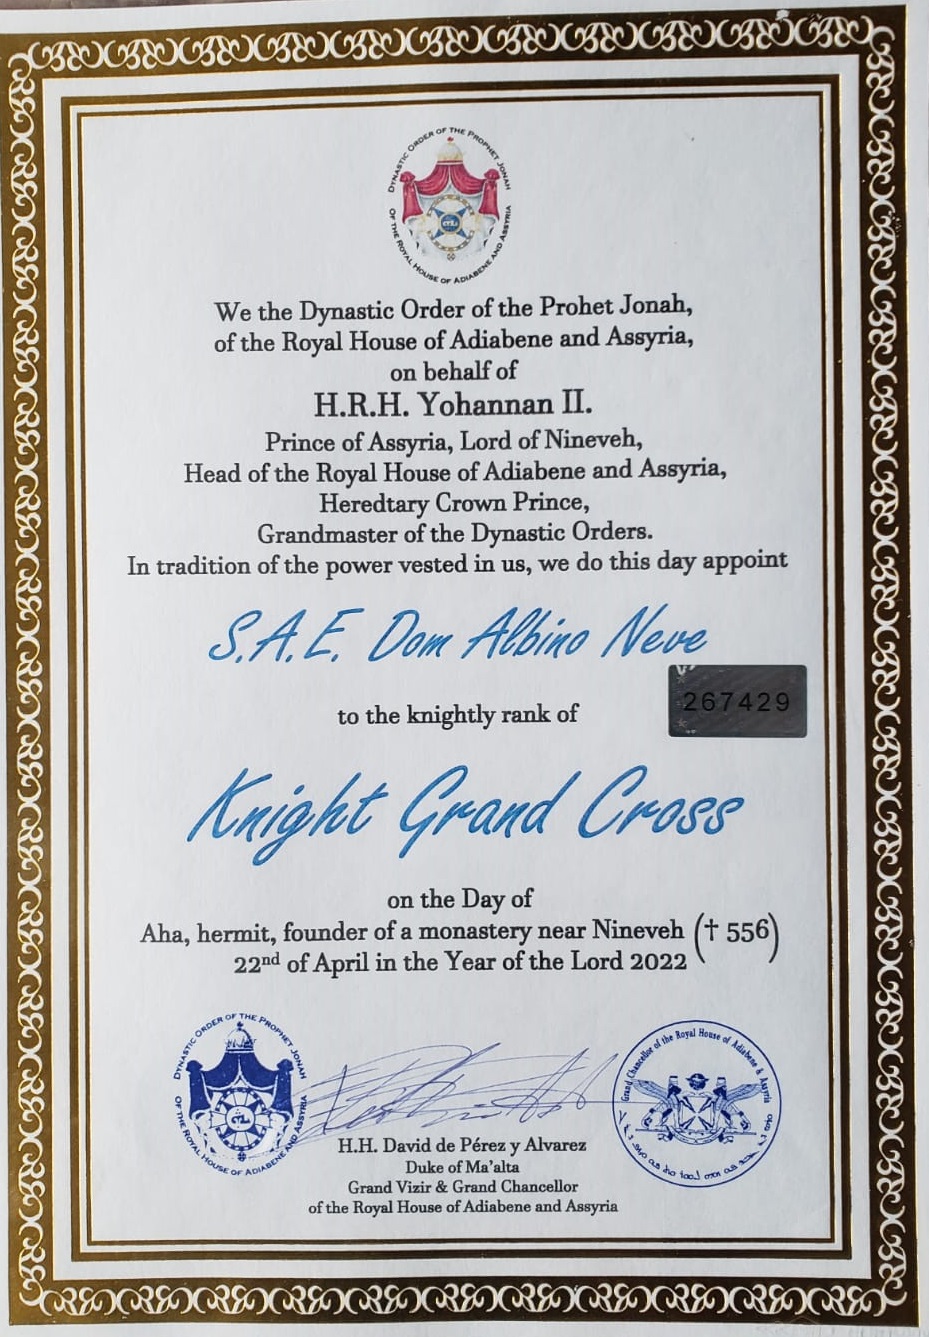 DYNASTIC ORDER OF THE PROPHET JONAH
OF THE ROYAL HOUSE OF ADIABENE AND ASSYRIA
We the Dynastic Order of the Prohet Jonah,
of the Royal House of Adiabene and Assyria,
on behalf of
H.R.H. Yohannan II.
Prince of Assyria, Lord of Nineveh,
Head of the Royal House of Adiabene and Assyria,
Heredtary Crown Prince,
Grandmaster of the Dynastic Orders.
In tradition of the power vested in us, we do this day appoint
S.A.E. Dom Albino Neve
267429
to the knightly rank of
Knight Grand Cross
on the Day of
Aha, hermit, founder of a monastery near Nineveh († 556)
22nd of April in the Year of the Lord 2022
DYNASTIC ORDER OF THE PROPHET JONAH
OF THE ROYAL HOUSE OF ADIABENE AND ASSYRIA
Grand Chancellor of the Royal House of Adiabene & Assyria
H.H. David de Pérez y Alvarez
Duke of Ma'alta
Grand Vizir & Grand Chancellor
of the Royal House of Adiabene and Assyria